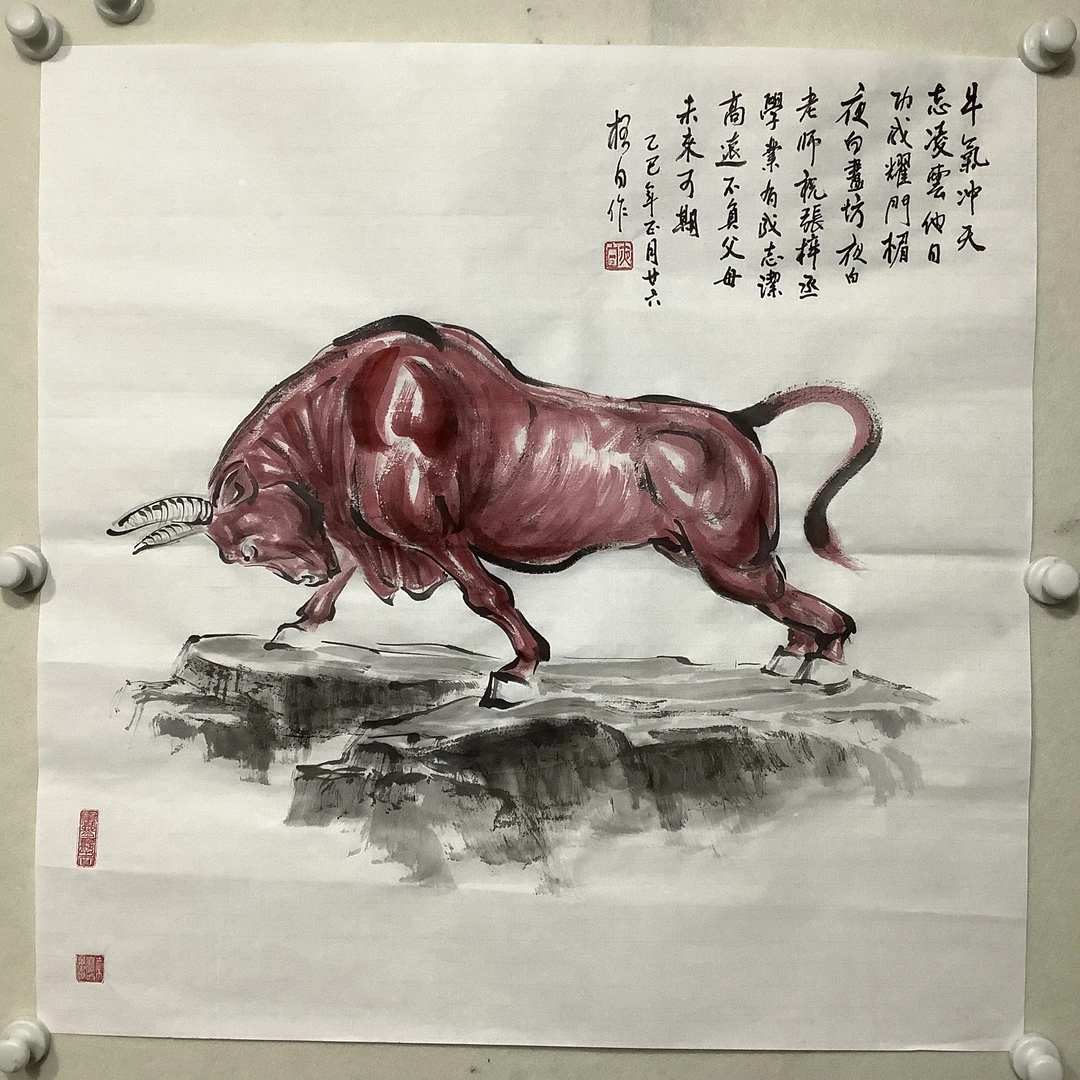 牛氣冲天
志凌雲他日
功成耀門楣
夜白畫坊夜白
老師祝張梓丞
學業有成志潔
高遠不負父母
未來可期
乙巳年正月廿六
白作